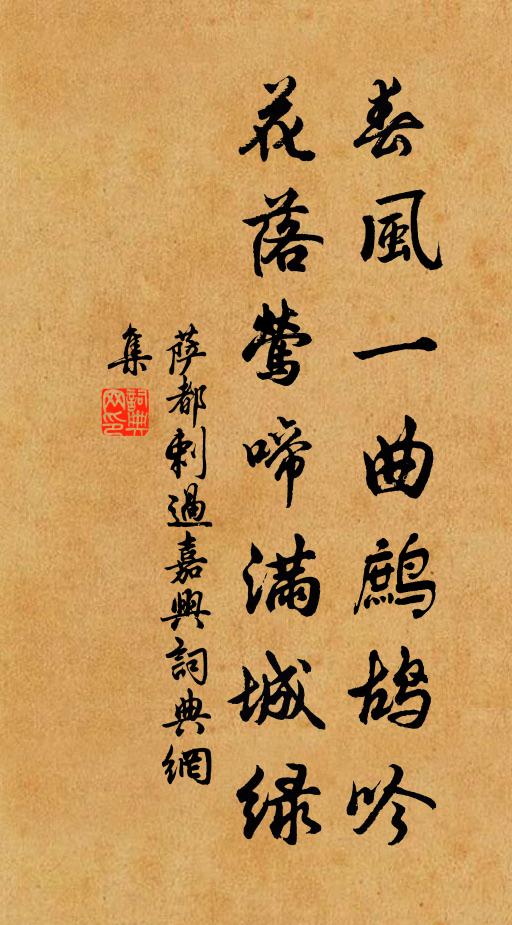 春風一曲鷓鴣吟
花落鶯啼滿城緑
薩都剌過嘉興詞典網
集
詞典網印